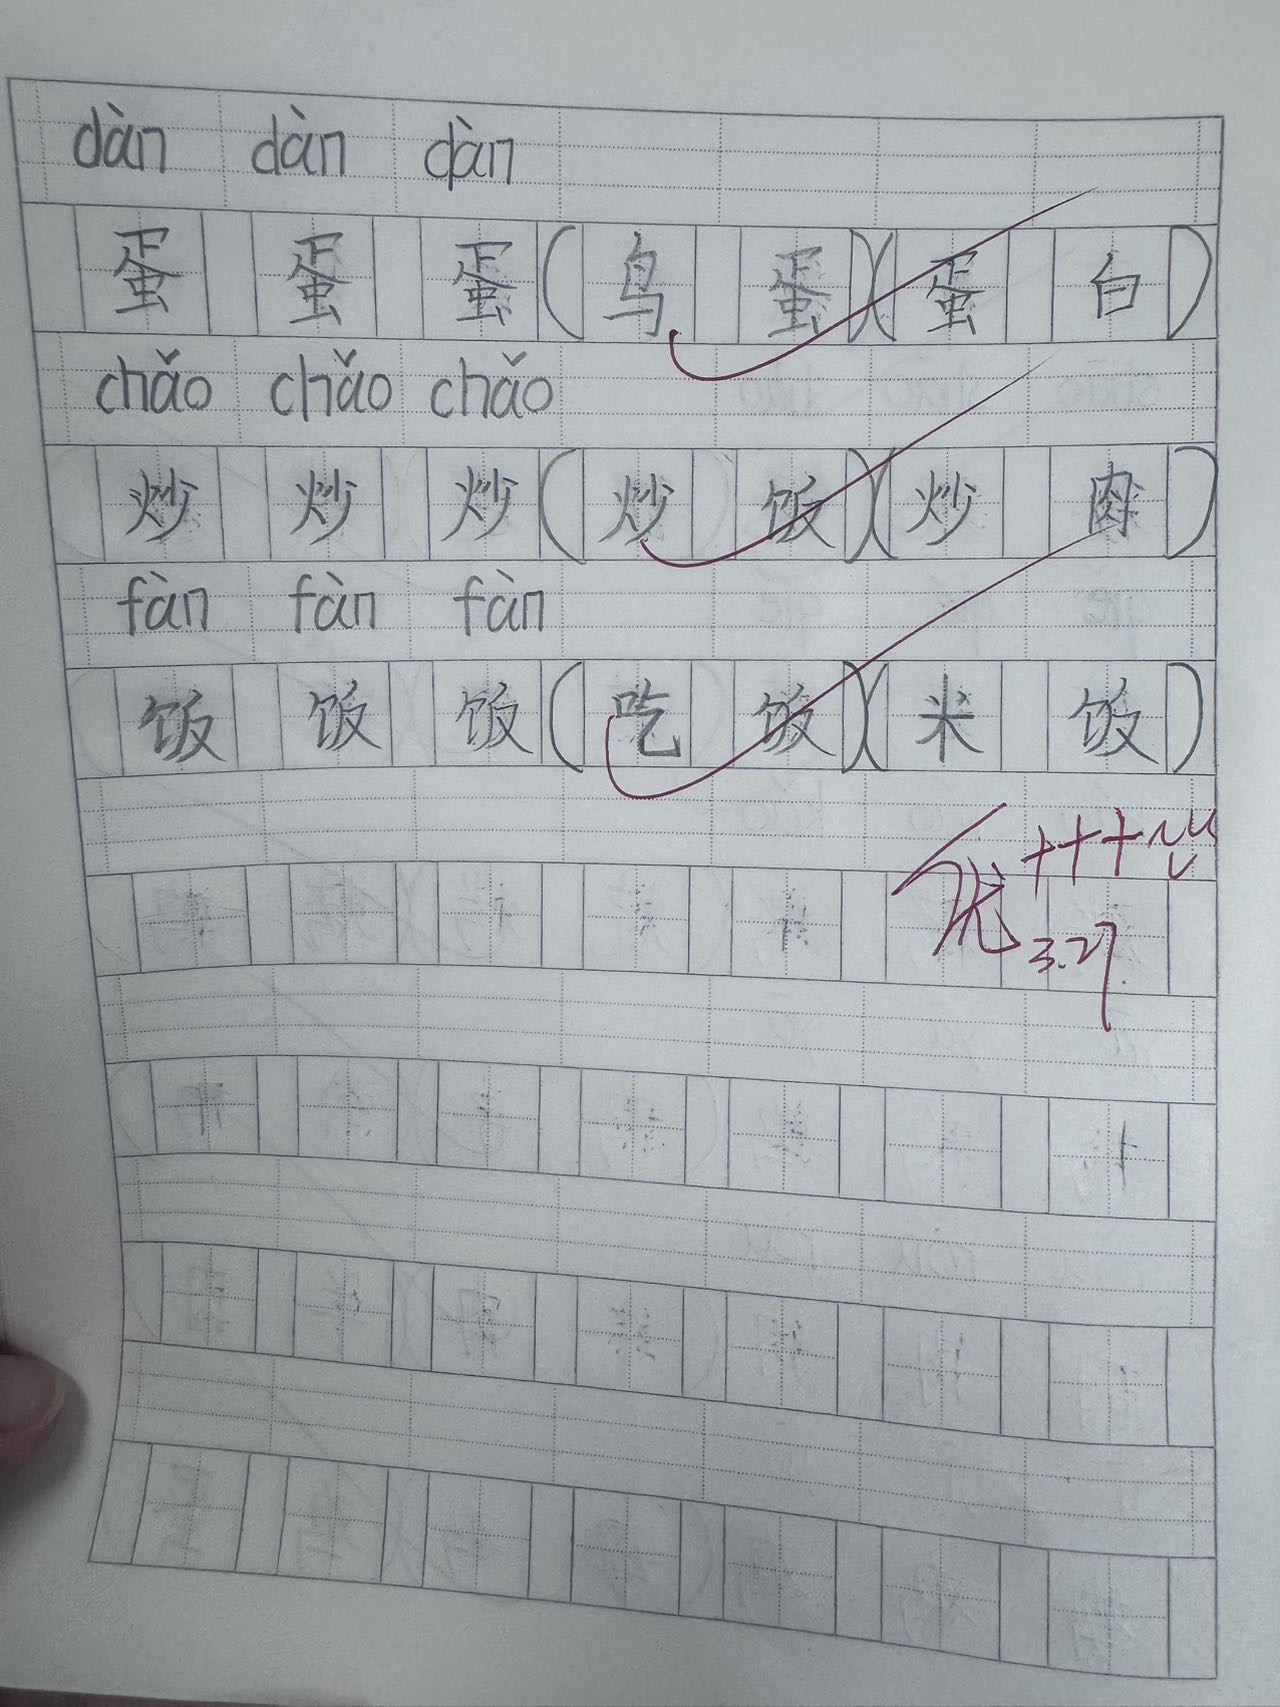 dàn dàn dàn
蛋 蛋 蛋 (鸟 蛋)(蛋 白)
chǎo chǎo chǎo
炒 炒 炒 (炒 饭)(炒 肉)
fàn fàn fàn
饭 饭 饭 (吃 饭)(米 饭)
优+++
3.27